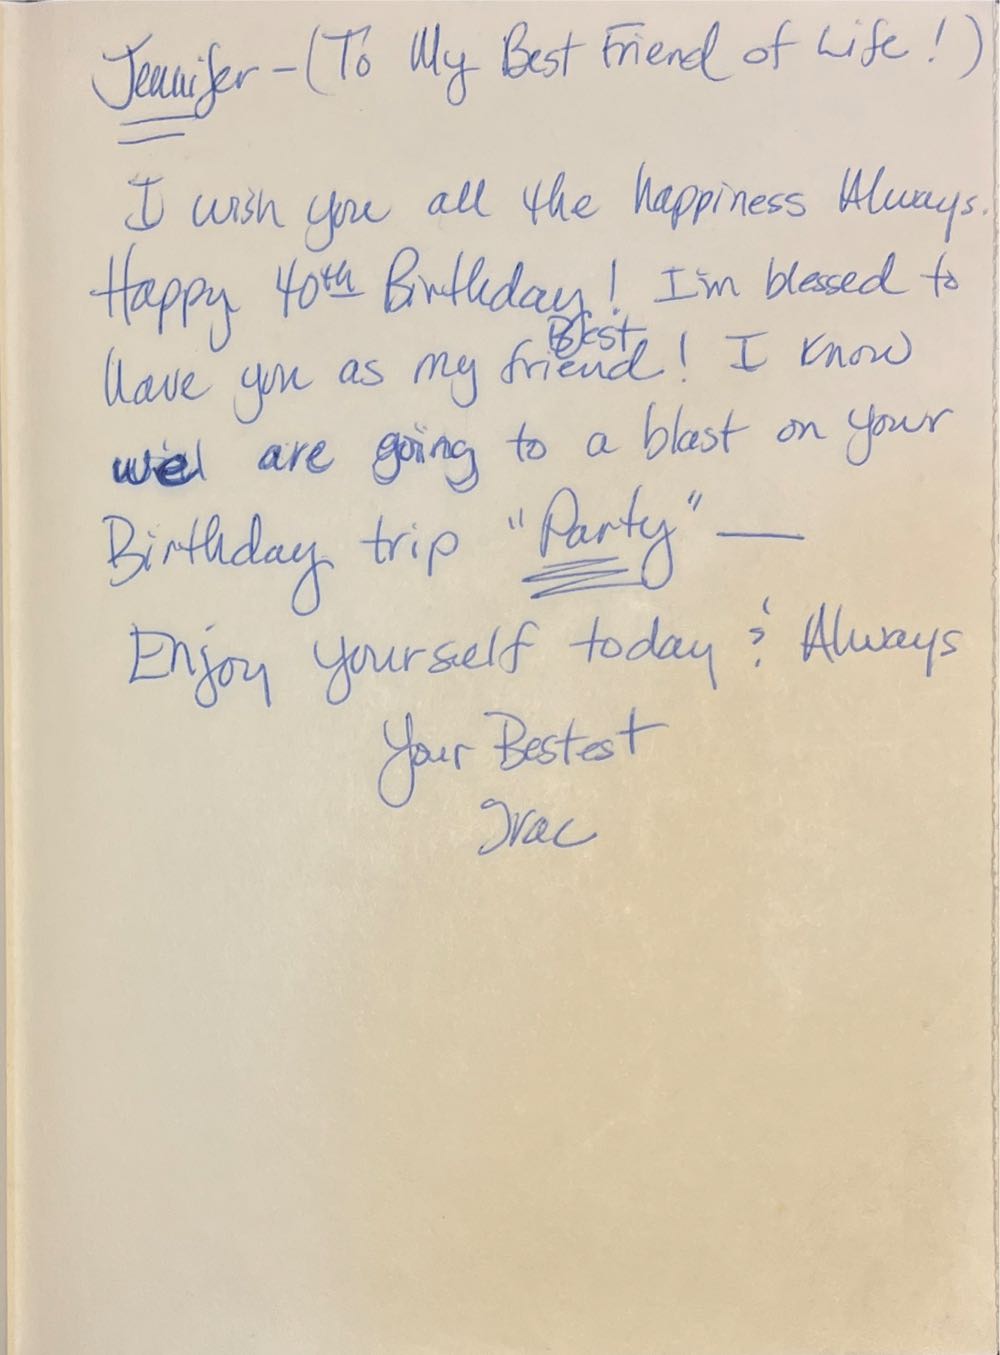 Jennifer - (To My Best Friend of Life!)
I wish you all the happiness Always.
Happy 40th Birthday! I'm blessed to
Best
have you as my friend! I know
we are going to a blast on your
Birthday trip "Party" —
Enjoy yourself today & Always
Your Bestest
Trac